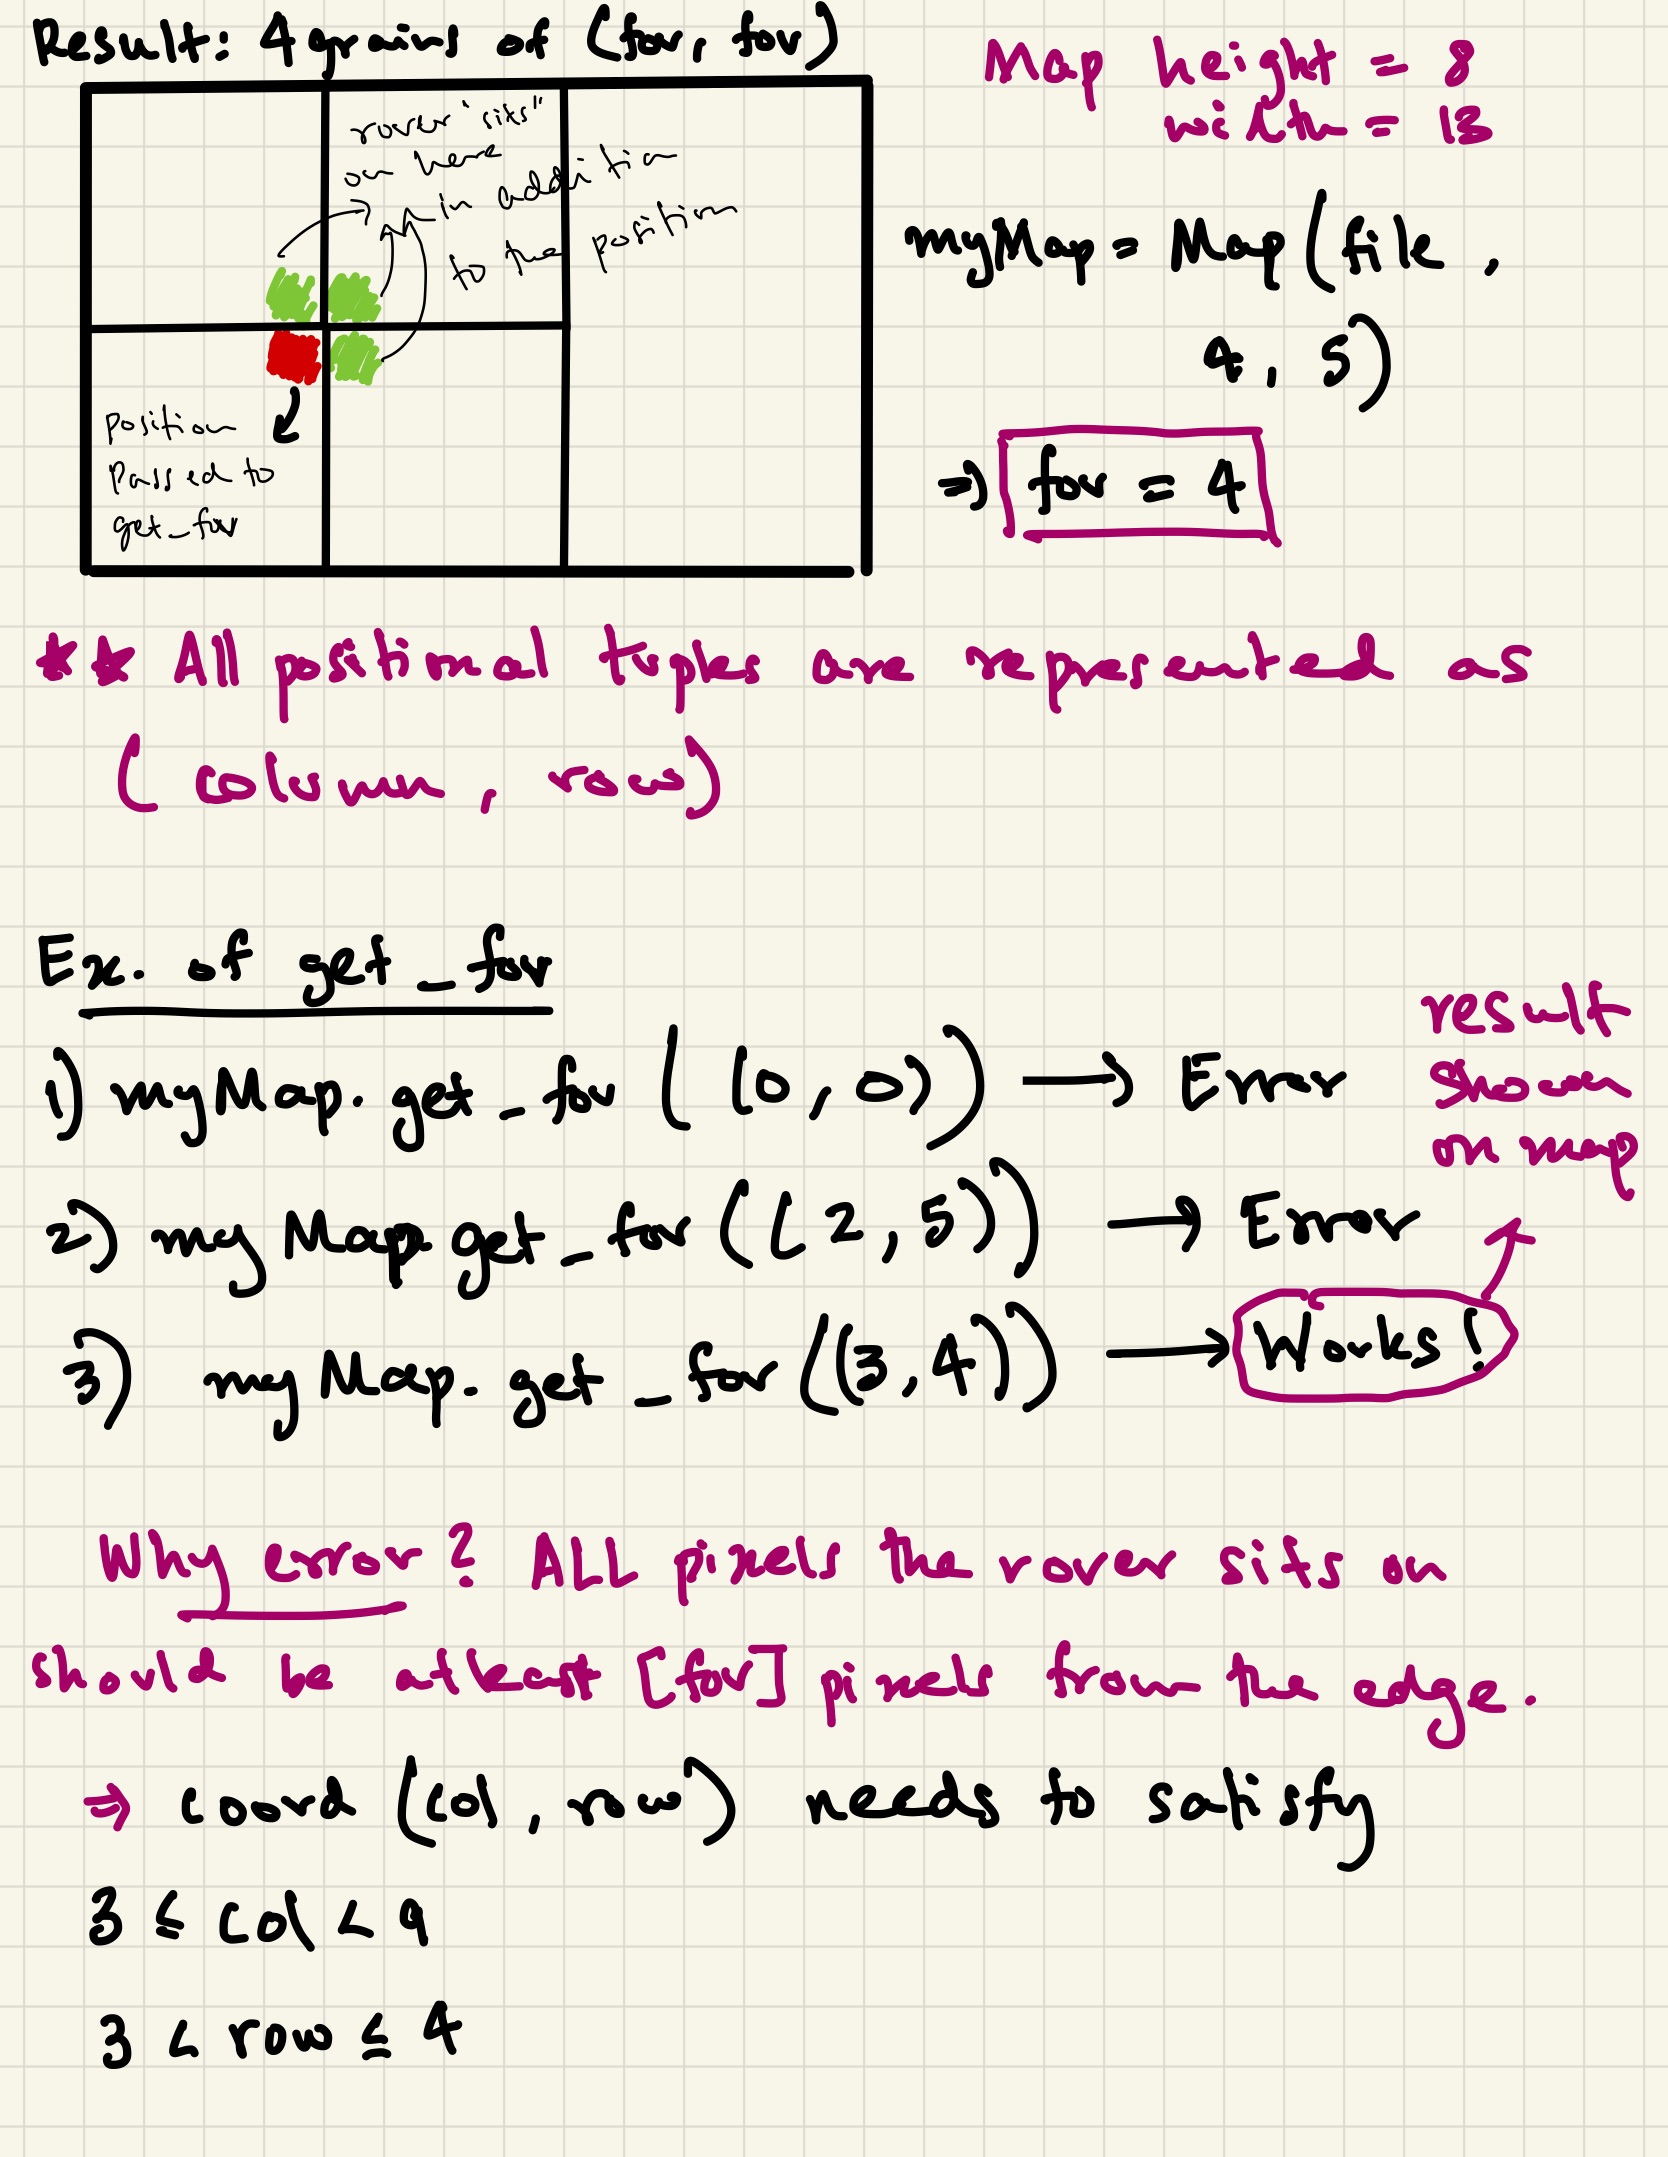 Result: 4 grains of (fov, fov)
rover "sits"
on here
in addition
to the position
position
passed to
get_fov
Map height = 8
width = 13
myMap = Map(file,
4, 5)
⇒ fov = 4
** All positional tuples are represented as
(column, row)
Ex. of get_fov
1) myMap.get_fov((0,0)) → Error
2) myMap.get_fov((2,5)) → Error
3) myMap.get_fov((3,4)) → Works!
result
shown
on map
Why error? ALL pixels the rover sits on
should be atleast [fov] pixels from the edge.
⇒ coord (col, row) needs to satisfy
3 ≤ col < 9
3 < row ≤ 4